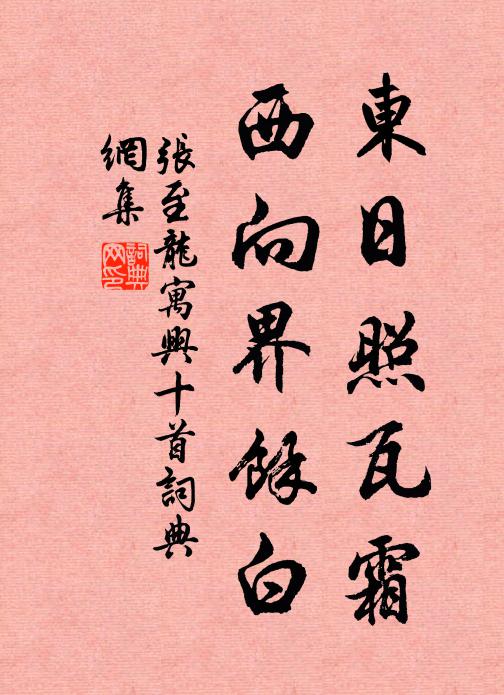 東日照瓦霜
西向界餘白
張至龍寓興十首詞典
網集
詞典網印